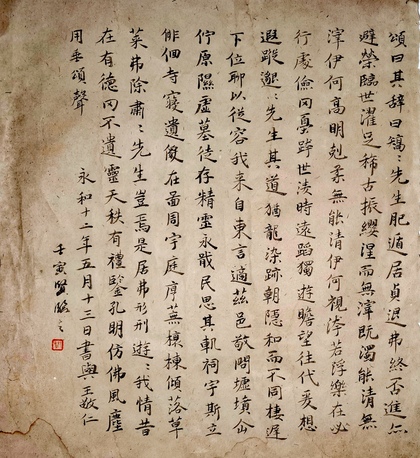 頌曰其辞曰矯〻先生肥遁居貞退弗終否進亦
避榮臨世濯足稀古振纓涅而無滓既濁能清無
滓伊何高明剋柔無能清伊何視洿若浮樂在必
行處儉罔憂跨世淩時遠蹈獨遊瞻望往代爰想
遐蹤邈〻先生其道猶龍染跡朝隱和而不同棲遲
下位聊以從容我来自東言適茲邑敬問墟墳企
佇原隰虛墓徒存精靈永戢民思其軌祠宇斯立
俳佪寺寢遺像在圖周宇庭序蕪榱棟傾落草
莱弗除肅〻先生豈焉是居弗形刑遊〻我情昔
在有德罔不遺靈天秩有禮鑒孔明仿佛風塵
用垂頌聲
永和十二年五月十三日書與王敬仁
壬寅賢